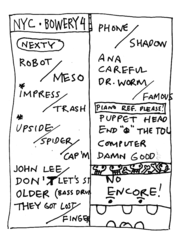 NYC • BOWERY 4
NEXTY
ROBOT /
MESO
*
IMPRESS /
TRASH
*
UPSIDE /
SPIDER /
CAP'M
JOHN LEE
DON'T LET'S ST
OLDER (BASS DRUM
THEY GOT LOST /
FINGER
PHONE /
SHADOW
ANA
CAREFUL
DR. WORM /
FAMOUS
PIANO REF. PLEASE!
PUPPET HEAD
END "*" THE TOU
COMPUTER
DAMN GOOD
NO
ENCORE!